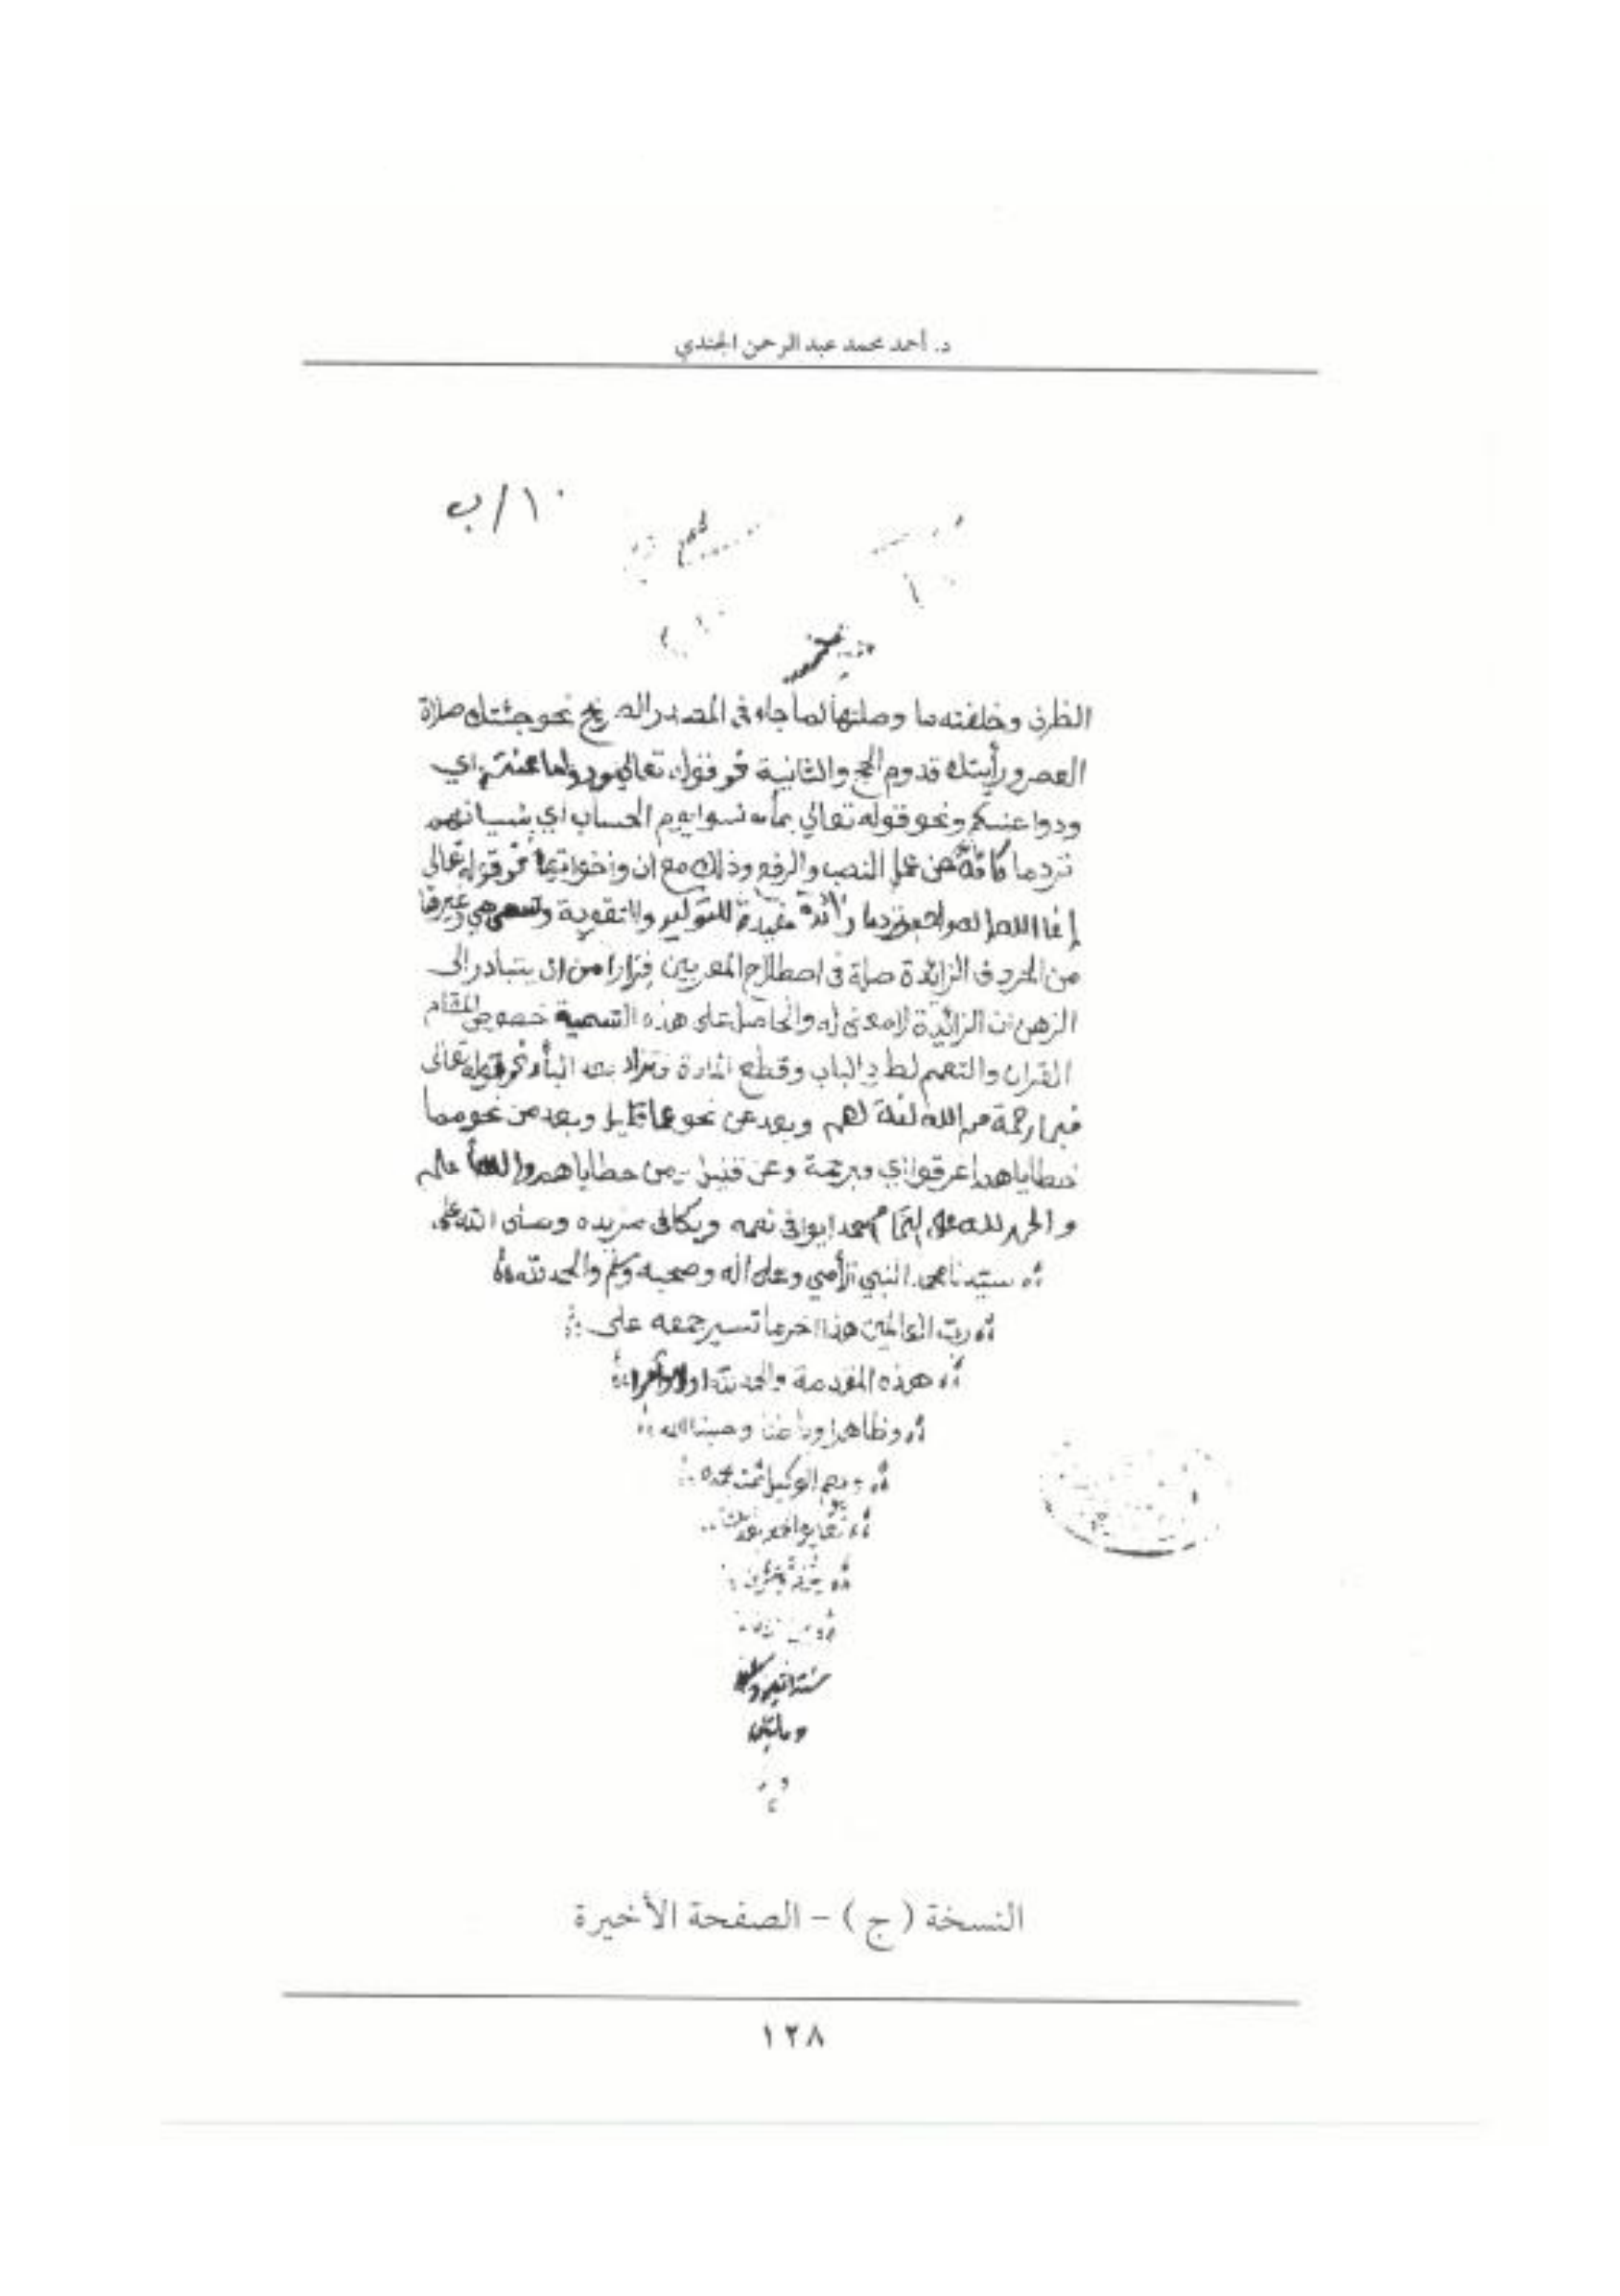 د. أحمد محمد عبد الرحمن الجندي
١٠/ب
الظرف وخلفته ما وصلتها كما جاء في المصدر الصريح نحو جئتك صلاة
العصر ورأيتك قدوم الحاج والثانية نحو قوله تعالى ودوا ما عنتم اي
ودوا عنتكم ونحو قوله تعالى بما نسوا يوم الحساب اي بنسيانهم
ترد ما كافة عن عمل النصب والرفع وذلك مع ان واخواتها نحو قوله تعالى
إنما الله اله واحد وترد ما زائدة مفيدة للتوكيد والتقوية وتسمى هي وغيرها
من الحروف الزائدة صلة في اصطلاح المعربين فرارا من ان يتبادر الى
الذهن ان الزائدة لا معنى له والحاصل على هذه التسمية خصوص المقام
القران والتعميم لطرد الباب وقطع المادة وتزاد بعد الباء نحو قوله تعالى
فبما رحمة من الله لنت لهم وبعد عن نحو عما قليل وبعد من نحو مما
خطاياهم اغرقوا اي فبرحمة وعن قليل ومن خطاياهم والله أعلم
والحمد لله على التمام حمدا يوافي نعمه ويكافي مزيده وصلى الله على
سيدنا محمد النبي الأمي وعلى اله وصحبه وسلم والحمد لله
رب العالمين هذا اخر ما تيسر جمعه على
هذه المقدمة والحمد لله اولا وأخرا
وظاهرا وباطنا وحسبنا الله
ونعم الوكيل تمت بحمده
ومايتين
النسخة (ج) - الصفحة الأخيرة
١٢٨